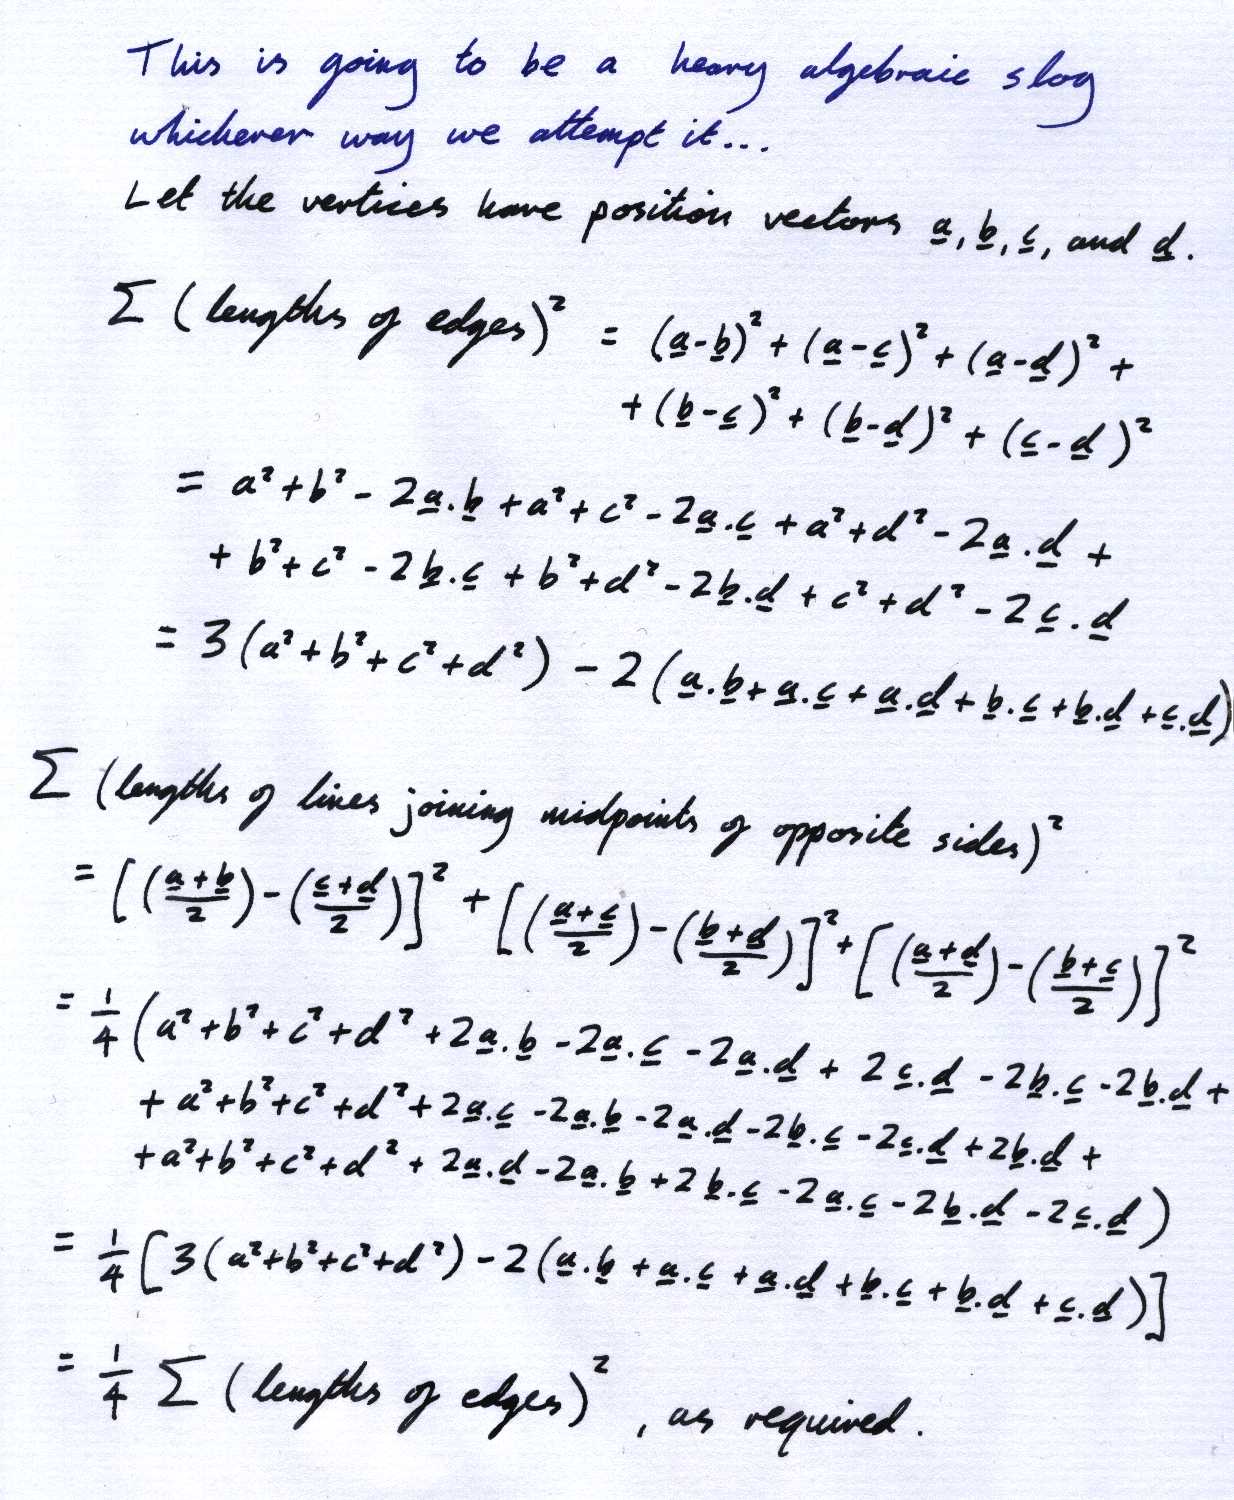 This is going to be a heavy algebraic slog
whichever way we attempt it...
Let the vertices have position vectors a, b, c, and d.
Σ (lengths of edges)² = (a-b)² + (a-c)² + (a-d)² +
+ (b-c)² + (b-d)² + (c-d)²
= a² + b² - 2a.b + a² + c² - 2a.c + a² + d² - 2a.d +
+ b² + c² - 2b.c + b² + d² - 2b.d + c² + d² - 2c.d
= 3(a² + b² + c² + d²) - 2(a.b + a.c + a.d + b.c + b.d + c.d)
Σ (lengths of lines joining midpoints of opposite sides)²
= [((a+b)/2) - ((c+d)/2)]² + [((a+c)/2) - ((b+d)/2)]² + [((a+d)/2) - ((b+c)/2)]²
= 1/4 (a² + b² + c² + d² + 2a.b - 2a.c - 2a.d + 2c.d - 2b.c - 2b.d +
+ a² + b² + c² + d² + 2a.c - 2a.b - 2a.d - 2b.c - 2c.d + 2b.d +
+ a² + b² + c² + d² + 2a.d - 2a.b + 2b.c - 2a.c - 2b.d - 2c.d)
= 1/4 [3(a² + b² + c² + d²) - 2(a.b + a.c + a.d + b.c + b.d + c.d)]
= 1/4 Σ (lengths of edges)², as required.